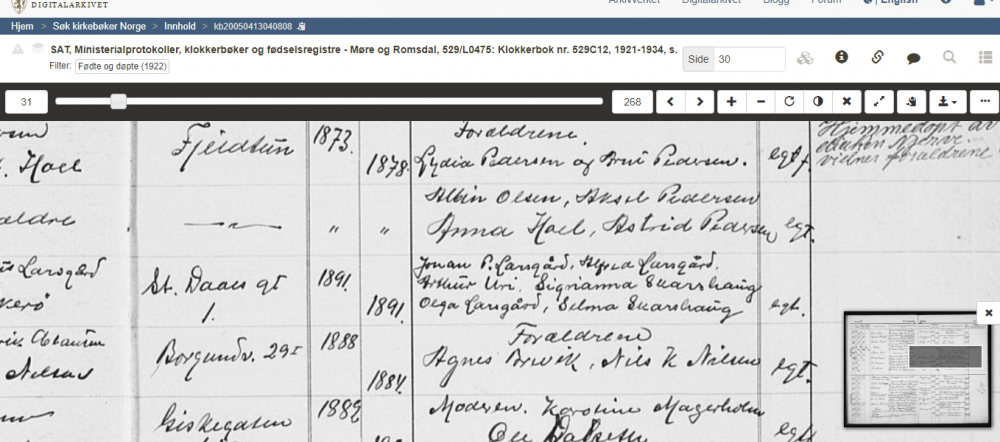 DIGITALARKIVET
Arkivverket Digitalarkivet Blogg Forum English
Hjem > Søk kirkebøker Norge > Innhold > kb20050413040808
SAT, Ministerialprotokoller, klokkerbøker og fødselsregistre - Møre og Romsdal, 529/L0475: Klokkerbok nr. 529C12, 1921-1934, s.
Filter: Fødte og døpte (1922)
Side 30
31
268
Hoel
Fjeldtun
1873.
1878.
Forældrene
Lydia Pedersen og Arni Pedersen.
egtf.
Hjemmedøpt av
forældrene
Albin Olsen, Aksel Pedersen
Anna Hoel, Astrid Pedersen
egt.
" "
Larsgård
St. Daaes gt
1.
1891.
1891.
Johan P. Larsgård, Alfred Larsgård.
Arthur Uri, Signianna Skarshaug
Olga Larsgård, Selma Skarshaug
egt.
Nilsen
Borgundv. 291
1888
1884.
Forældrene
Agnes Brevik, Nils K Nilsen
egt.
Giskegaten
1889
Modren. Karoline Magerholm